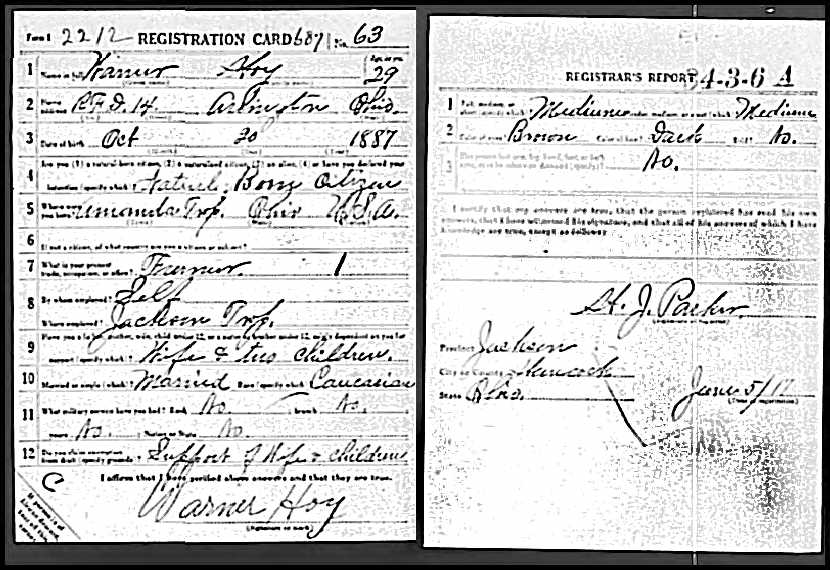 Form 1 2212 REGISTRATION CARD 687 No. 63
1 Name in full Warner Hoy Age, in yrs. 29
2 Home address R.F.D. 14 Arlington Ohio.
3 Date of birth Oct 30 1887
4 Are you (1) a natural born citizen, (2) a naturalized citizen, (3) an alien, (4) or have you declared your
intention (specify which)? Natural Born Citizen
5 Where were you born? Amanda Twp. Ohio U.S.A.
6 If not a citizen, of what country are you a citizen or subject?
7 What is your present trade, occupation, or office? Farmer. 1
8 By whom employed? Self
Where employed? Jackson Twp.
9 Have you a father, mother, wife, child under 12, or a sister or brother under 12, solely dependent on you for
support (specify which)? Wife & two children.
10 Married or single (which)? Married Race (specify which)? Caucasian
11 What military service have you had? Rank No. ; branch No.
years No. ; Nation or State No.
12 Do you claim exemption from draft (specify grounds)? Support of Wife & children
I affirm that I have verified above answers and that they are true.
C
Warner Hoy
(Signature or mark)
REGISTRAR'S REPORT 34-3-6 A
1 Tall, medium, or short (specify which)? Medium Slender, medium, or stout (which)? Medium
2 Color of eyes? Brown Color of hair? Dark Bald? No.
3 Has person lost arm, leg, hand, foot, or both eyes, or is he otherwise disabled (specify)? No.
I certify that my answers are true, that the person registered has read his own
answers, that I have witnessed his signature, and that all of his answers of which I have
knowledge are true, except as follows:
H. J. Parker
(Signature of registrar)
Precinct Jackson
City or County Hancock
State Ohio.
June 5/17
(Date of registration)